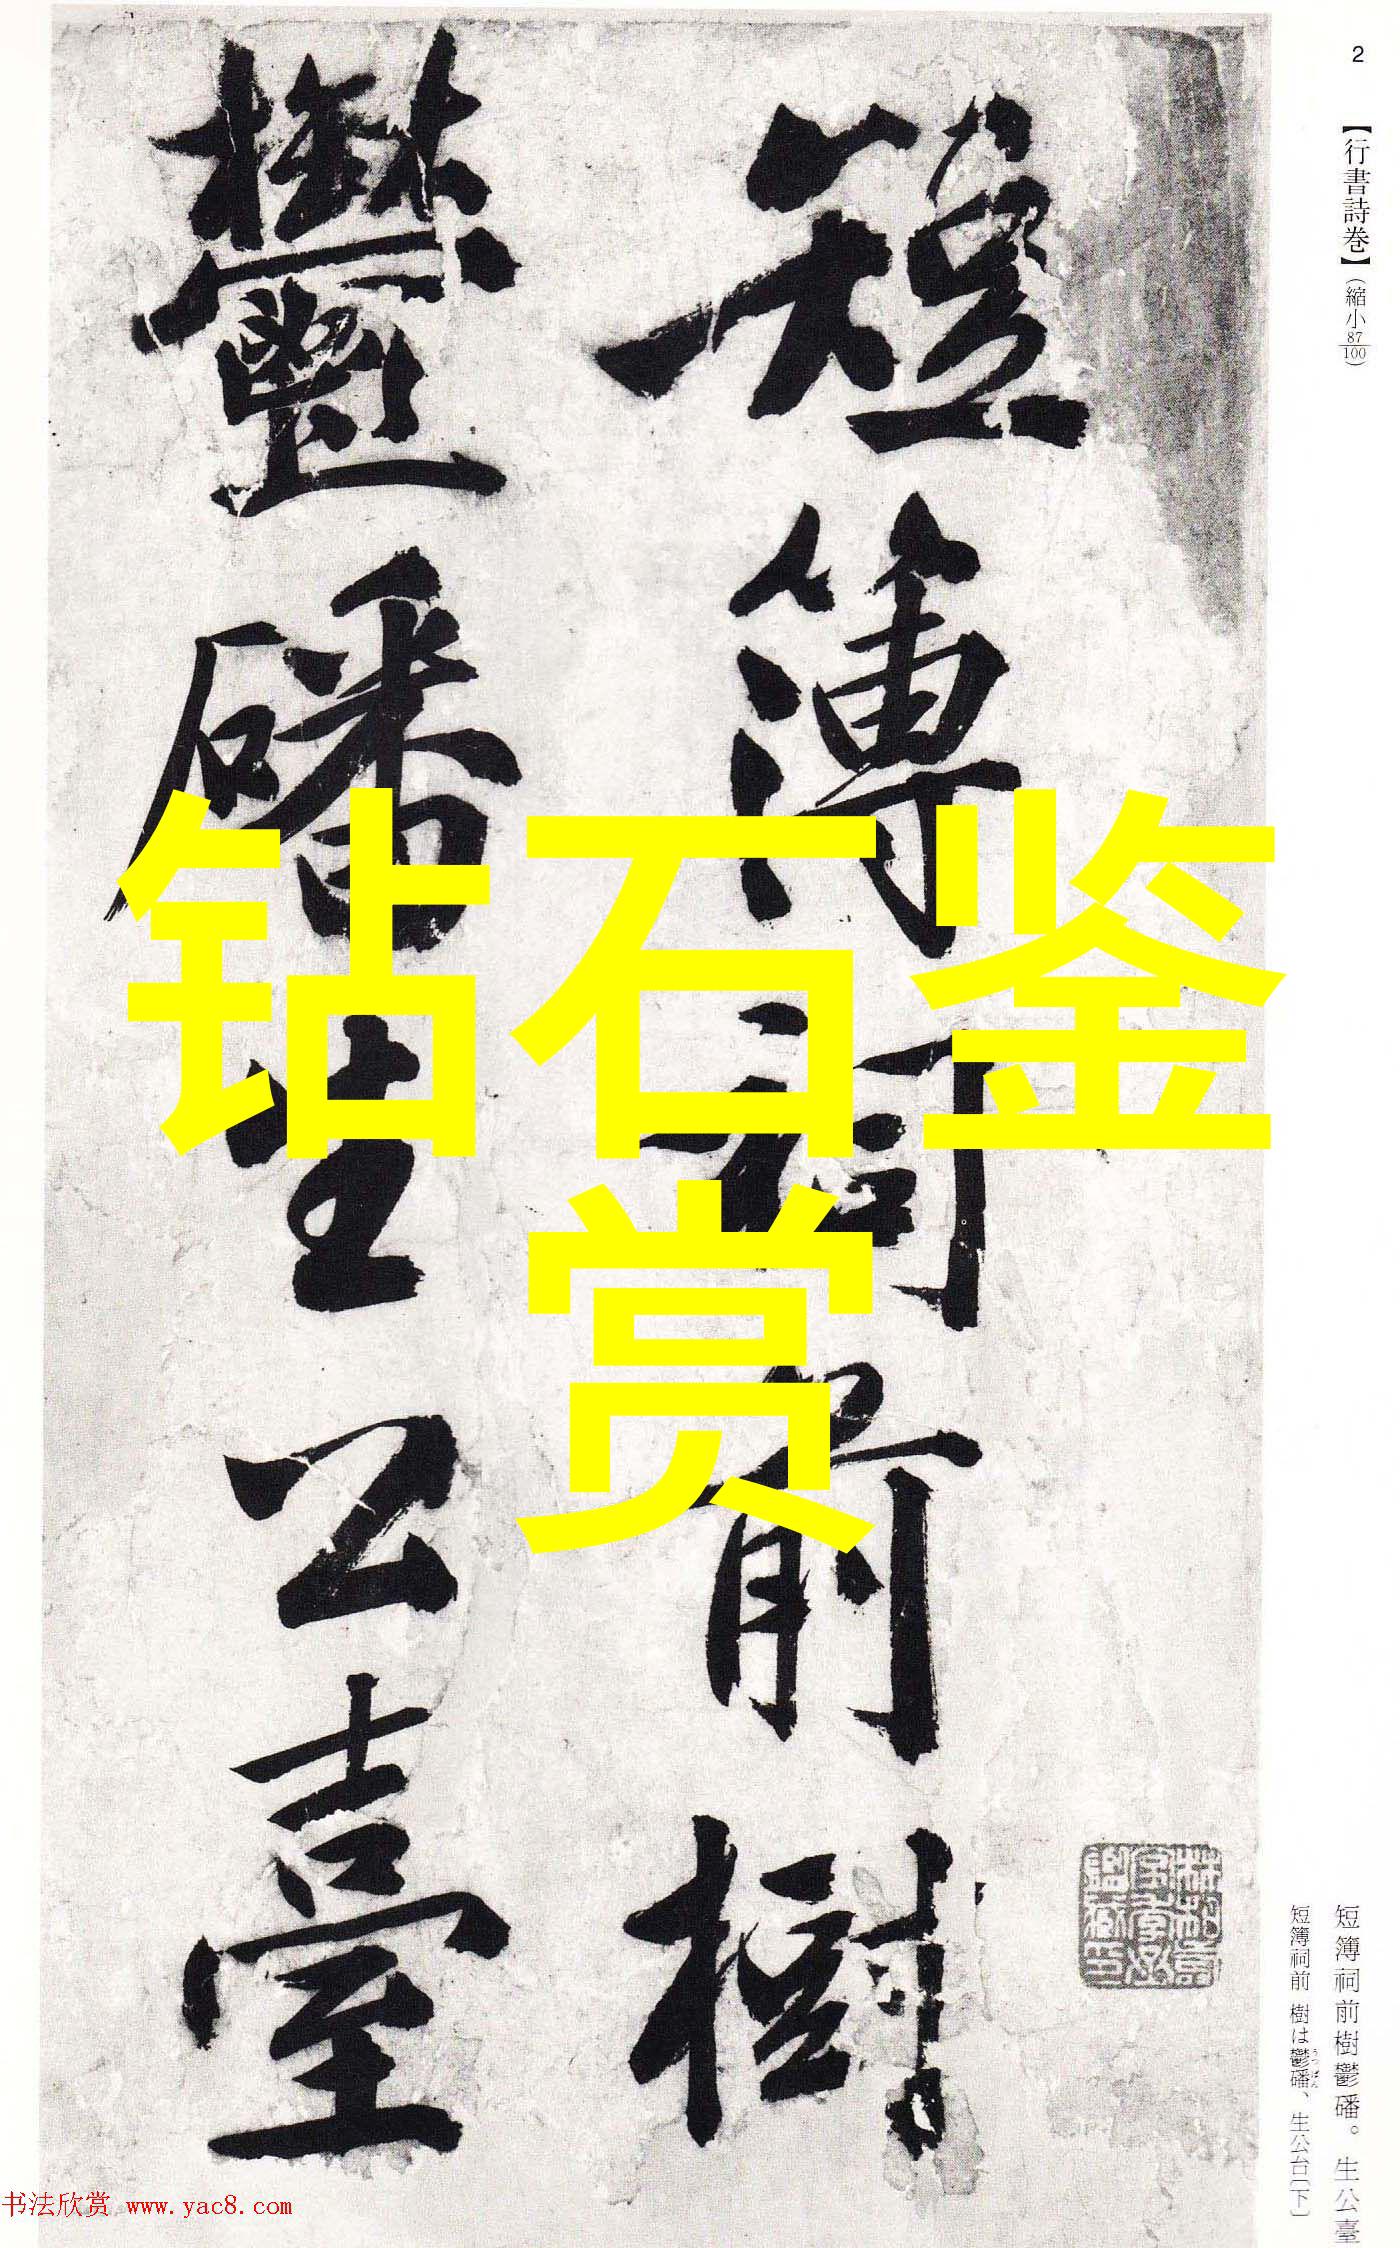 2
【行書詩巻】(縮小87/100)
短簿祠前樹
鬱磻生公臺
钻石鉴
赏
短簿祠前樹鬱磻。生公臺
短簿祠前 樹は鬱磻、生公台〔下〕
うつばん
书法欣赏 www.yac8.com